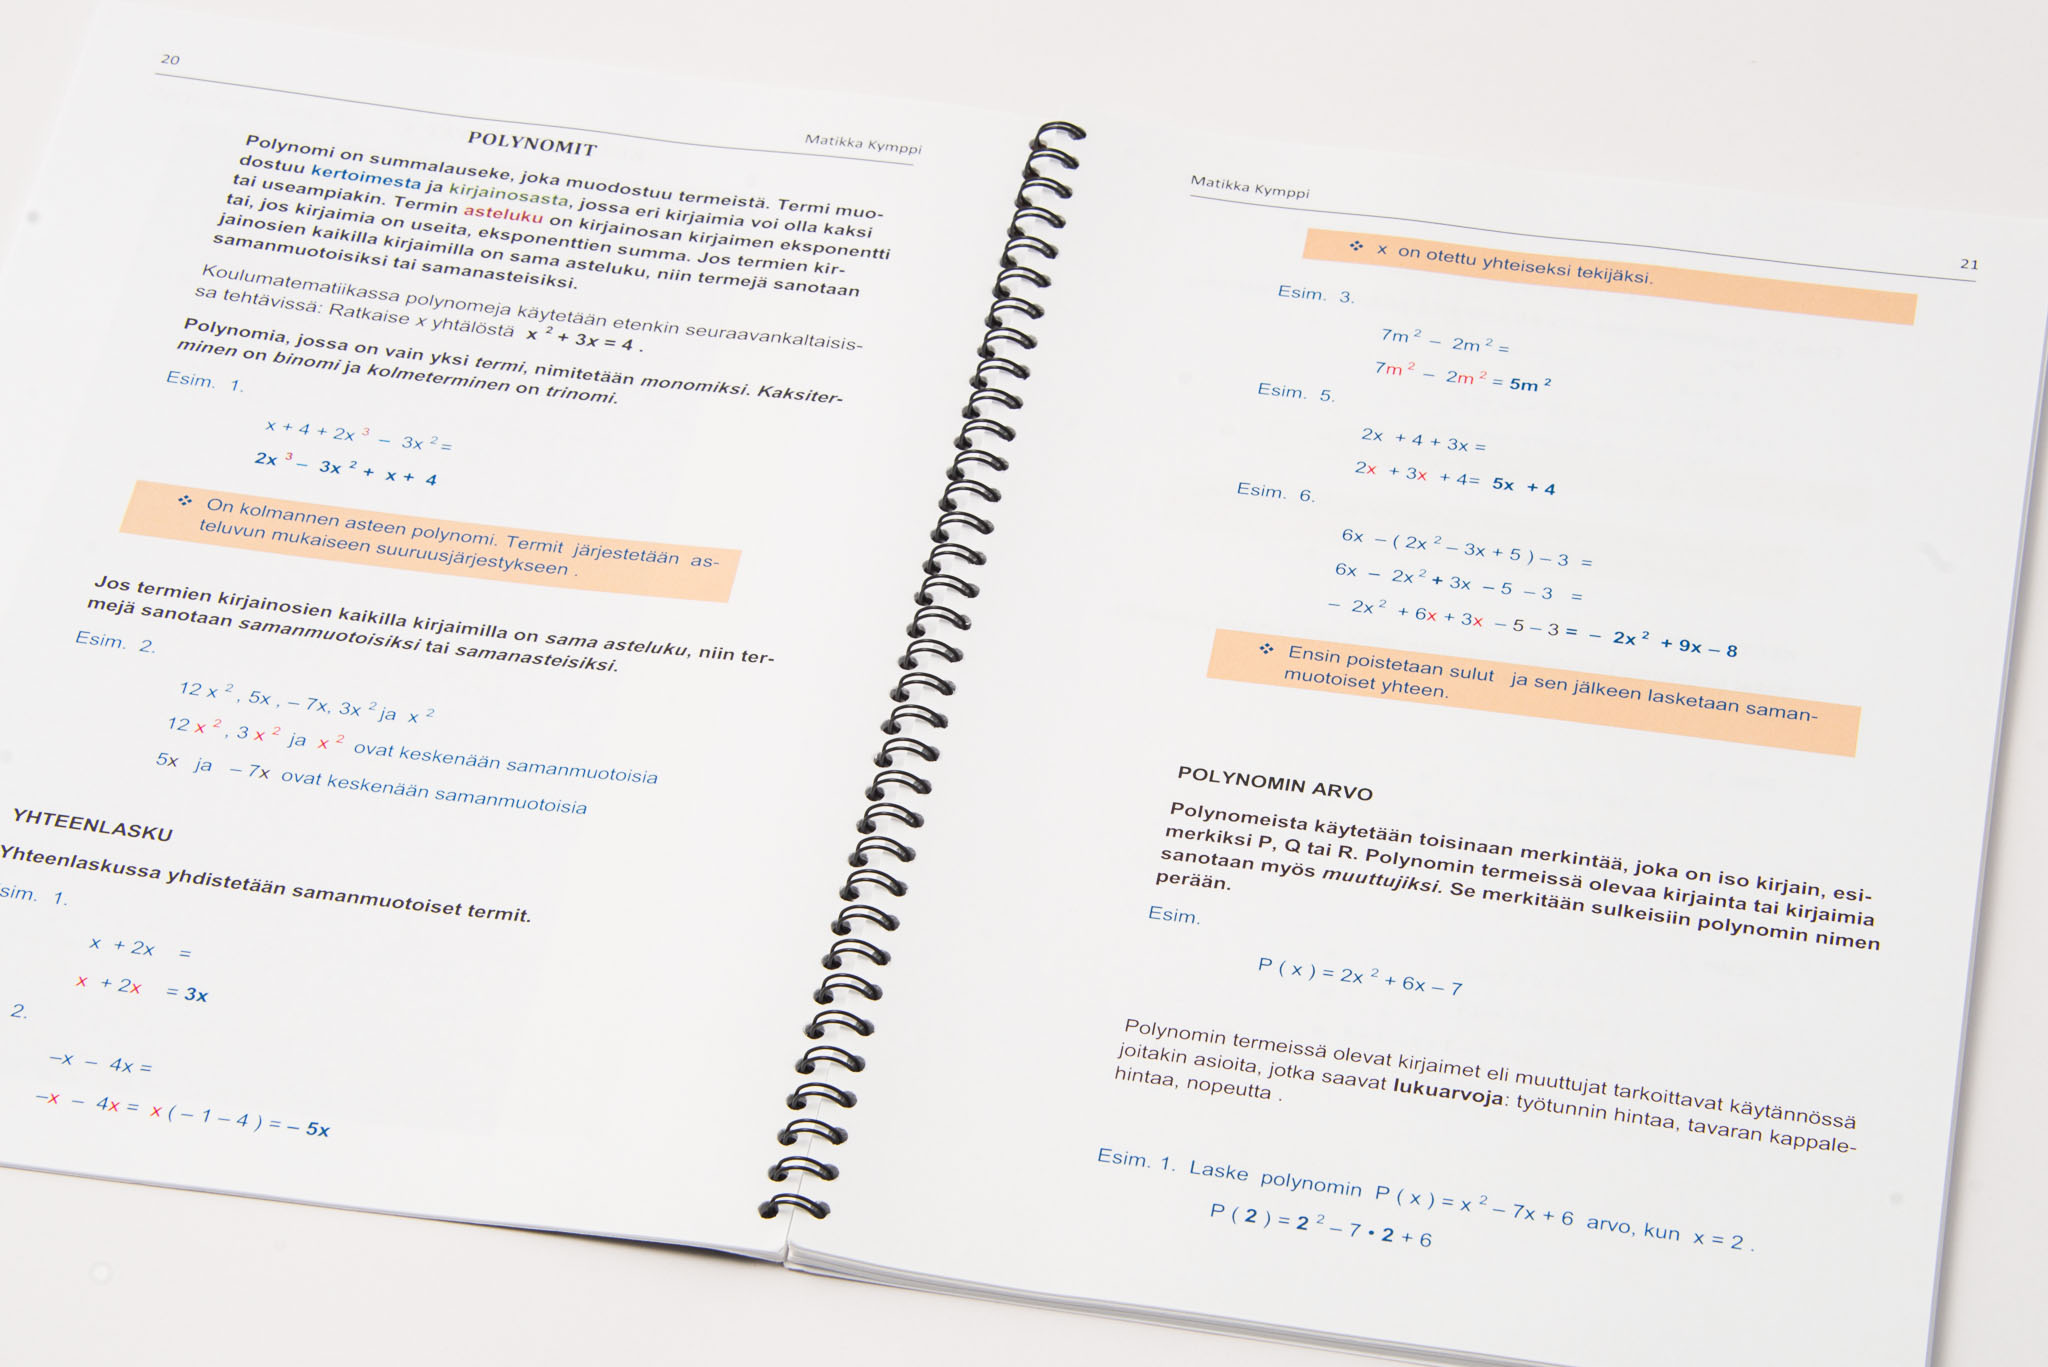 20
Matikka Kymppi
POLYNOMIT
Polynomi on summalauseke, joka muodostuu termeistä. Termi muo-
dostuu kertoimesta ja kirjainosasta, jossa eri kirjaimia voi olla kaksi
tai useampiakin. Termin asteluku on kirjainosan kirjaimen eksponentti
tai, jos kirjaimia on useita, eksponenttien summa. Jos termien kir-
jainosien kaikilla kirjaimilla on sama asteluku, niin termejä sanotaan
samanmuotoisiksi tai samanasteisiksi.
Koulumatematiikassa polynomeja käytetään etenkin seuraavankaltaisis-
sa tehtävissä: Ratkaise x yhtälöstä x ² + 3x = 4 .
Polynomia, jossa on vain yksi termi, nimitetään monomiksi. Kaksiter-
minen on binomi ja kolmeterminen on trinomi.
Esim. 1.
x + 4 + 2x ³ – 3x ² =
2x ³ – 3x ² + x + 4
❖ On kolmannen asteen polynomi. Termit järjestetään as-
teluvun mukaiseen suuruusjärjestykseen .
Jos termien kirjainosien kaikilla kirjaimilla on sama asteluku, niin ter-
mejä sanotaan samanmuotoisiksi tai samanasteisiksi.
Esim. 2.
12 x ² , 5x , – 7x, 3x ² ja x ²
12 x ² , 3 x ² ja x ² ovat keskenään samanmuotoisia
5x ja – 7x ovat keskenään samanmuotoisia
YHTEENLASKU
Yhteenlaskussa yhdistetään samanmuotoiset termit.
sim. 1.
x + 2x =
x + 2x = 3x
2.
–x – 4x =
–x – 4x = x ( – 1 – 4 ) = – 5x
Matikka Kymppi
21
❖ x on otettu yhteiseksi tekijäksi.
Esim. 3.
7m ² – 2m ² =
7m ² – 2m ² = 5m ²
Esim. 5.
2x + 4 + 3x =
2x + 3x + 4= 5x + 4
Esim. 6.
6x – ( 2x ² – 3x + 5 ) – 3 =
6x – 2x ² + 3x – 5 – 3 =
– 2x ² + 6x + 3x – 5 – 3 = – 2x ² + 9x – 8
❖ Ensin poistetaan sulut ja sen jälkeen lasketaan saman-
muotoiset yhteen.
POLYNOMIN ARVO
Polynomeista käytetään toisinaan merkintää, joka on iso kirjain, esi-
merkiksi P, Q tai R. Polynomin termeissä olevaa kirjainta tai kirjaimia
sanotaan myös muuttujiksi. Se merkitään sulkeisiin polynomin nimen
perään.
Esim.
P ( x ) = 2x ² + 6x – 7
Polynomin termeissä olevat kirjaimet eli muuttujat tarkoittavat käytännössä
joitakin asioita, jotka saavat lukuarvoja: työtunnin hintaa, tavaran kappale-
hintaa, nopeutta .
Esim. 1. Laske polynomin P ( x ) = x ² – 7x + 6 arvo, kun x = 2 .
P ( 2 ) = 2 ² – 7 • 2 + 6